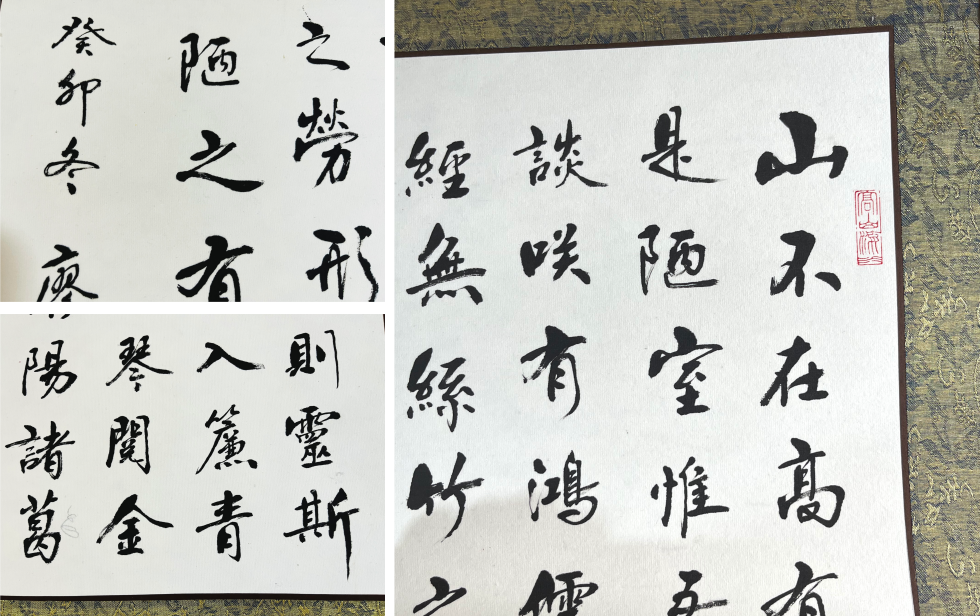 之勞形
陋之有
癸卯冬廖
則靈斯
入簾青
琴閱金
陽諸葛
山不在高有
是陋室惟吾
談咲有鴻儒
經無絲竹之